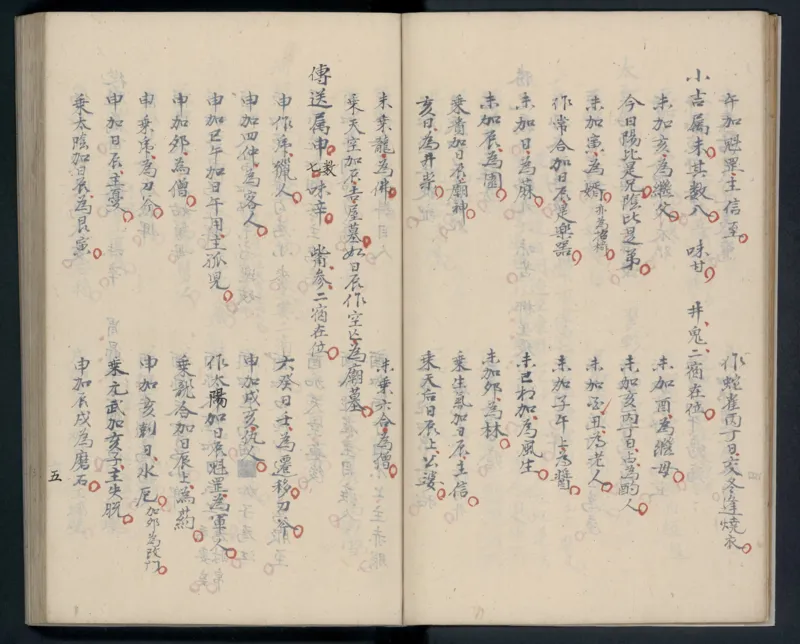 午加魁罡主信至
作蛇雀丙丁日亥冬逢燒衣
小吉屬未其數八 味甘 井鬼二宿在位
未加亥為繼父
未加酉為繼母
今日陽比是兄陰比是弟
未加亥丙丁日占為酌人
未加寅為婿
未加丑為老人
作常合加日辰是樂器
未加子午占為醬
未加日為麻
未巳相加為風生
未加辰為園
未加卯為林
乘貴加日辰廟神
乘生氣加日辰主信
亥日為井泉
乘天后日辰上公婆
未乘龍為佛
未乘六合為僧
乘天空加辰吉屋墓如日辰作空亡為廟墓
傳送屬申 數七味辛 觜參二宿在位
申作虎獵人
六癸日壬為遷移刃斧
申加四仲為客人
申加戌亥
申加巳午加日午用主孤兒
作太陽加日辰魁罡為軍人
申加卯為僧
乘龍合加日辰上為葯
申乘虎為刀斧
申加亥刺日水厄加卯為改門
申加日辰主憂
乘元武加亥子主失脫
乘太陰加日辰為艮寅
申加辰戌為磨石
五